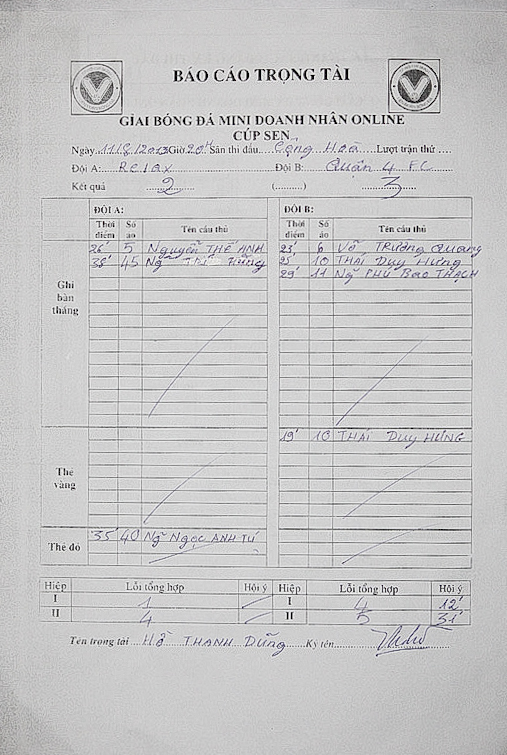 BÁO CÁO TRỌNG TÀI
GIẢI BÓNG ĐÁ MINI DOANH NHÂN ONLINE
CÚP SEN
Ngày 11/8/2013 Giờ 20H Sân thi đấu Cộng Hoà Lượt trận thứ
Đội A: Relax Đội B: Quận 4 FC
Kết quả 2 (..........) 3
ĐỘI A: ĐỘI B:
Thời điểm Số áo Tên cầu thủ Thời điểm Số áo Tên cầu thủ
Ghi bàn thắng
26' 5 Nguyễn THẾ ANH 23' 6 Võ TRường Quang
38' 45 Ng̃ Hùng 25' 10 THÁI Duy Hưng
29' 11 Ng̃ PHÚ Bảo THẠCH
Thẻ vàng
19' 10 THÁI Duy HƯNG
Thẻ đỏ
35' 40 Ng̃ Ngọc ANH TÚ
Hiệp Lỗi tổng hợp Hội ý Hiệp Lỗi tổng hợp Hội ý
I 1 I 4 12'
II 4 II 5 31'
Tên trọng tài Hồ THANH Dũng Ký tên